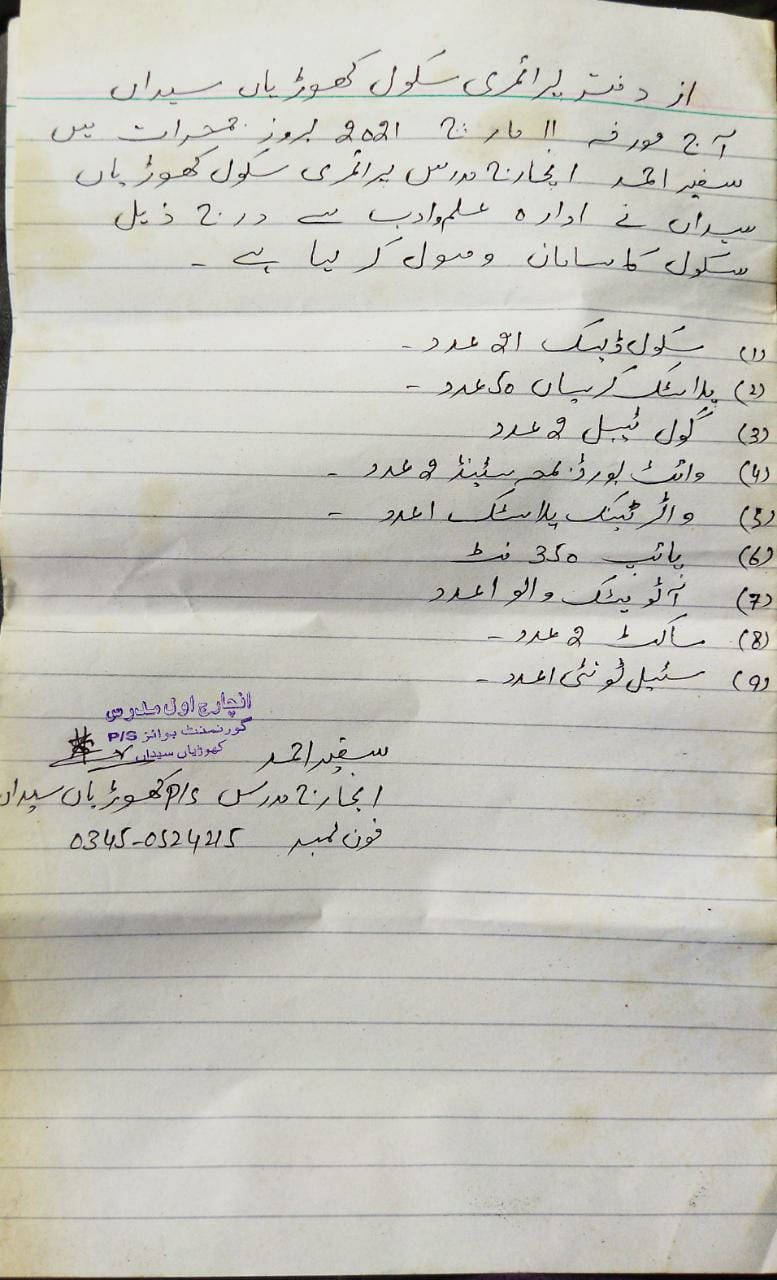 از دفتر پرائمری سکول کھوڑیاں سیداں
آج مورخہ 11 مارچ 2021 بروز جمعرات میں
سفیر احمد انچارج مدرس پرائمری سکول کھوڑیاں
سیداں نے ادارہ علم و ادب سے درج ذیل
سکول کا سامان وصول کر لیا ہے ۔
(1) سکول ڈیسک 21 عدد ۔
(2) پلاسٹک کرسیاں 50 عدد ۔
(3) گول ٹیبل 2 عدد
(4) وائٹ بورڈ بمعہ سٹینڈ 2 عدد ۔
(5) واٹر ٹینک پلاسٹک 1 عدد ۔
(6) پائپ 350 فٹ
(7) آٹومیٹک والو 1 عدد
(8) ساکٹ 2 عدد ۔
(9) سٹیل ٹونٹی 1 عدد ۔
انچارج اول مدرس
گورنمنٹ بوائز P/S
کھوڑیاں سیداں
سفیر احمد
انچارج مدرس P/S کھوڑیاں سیداں
فون نمبر 0345-0524215